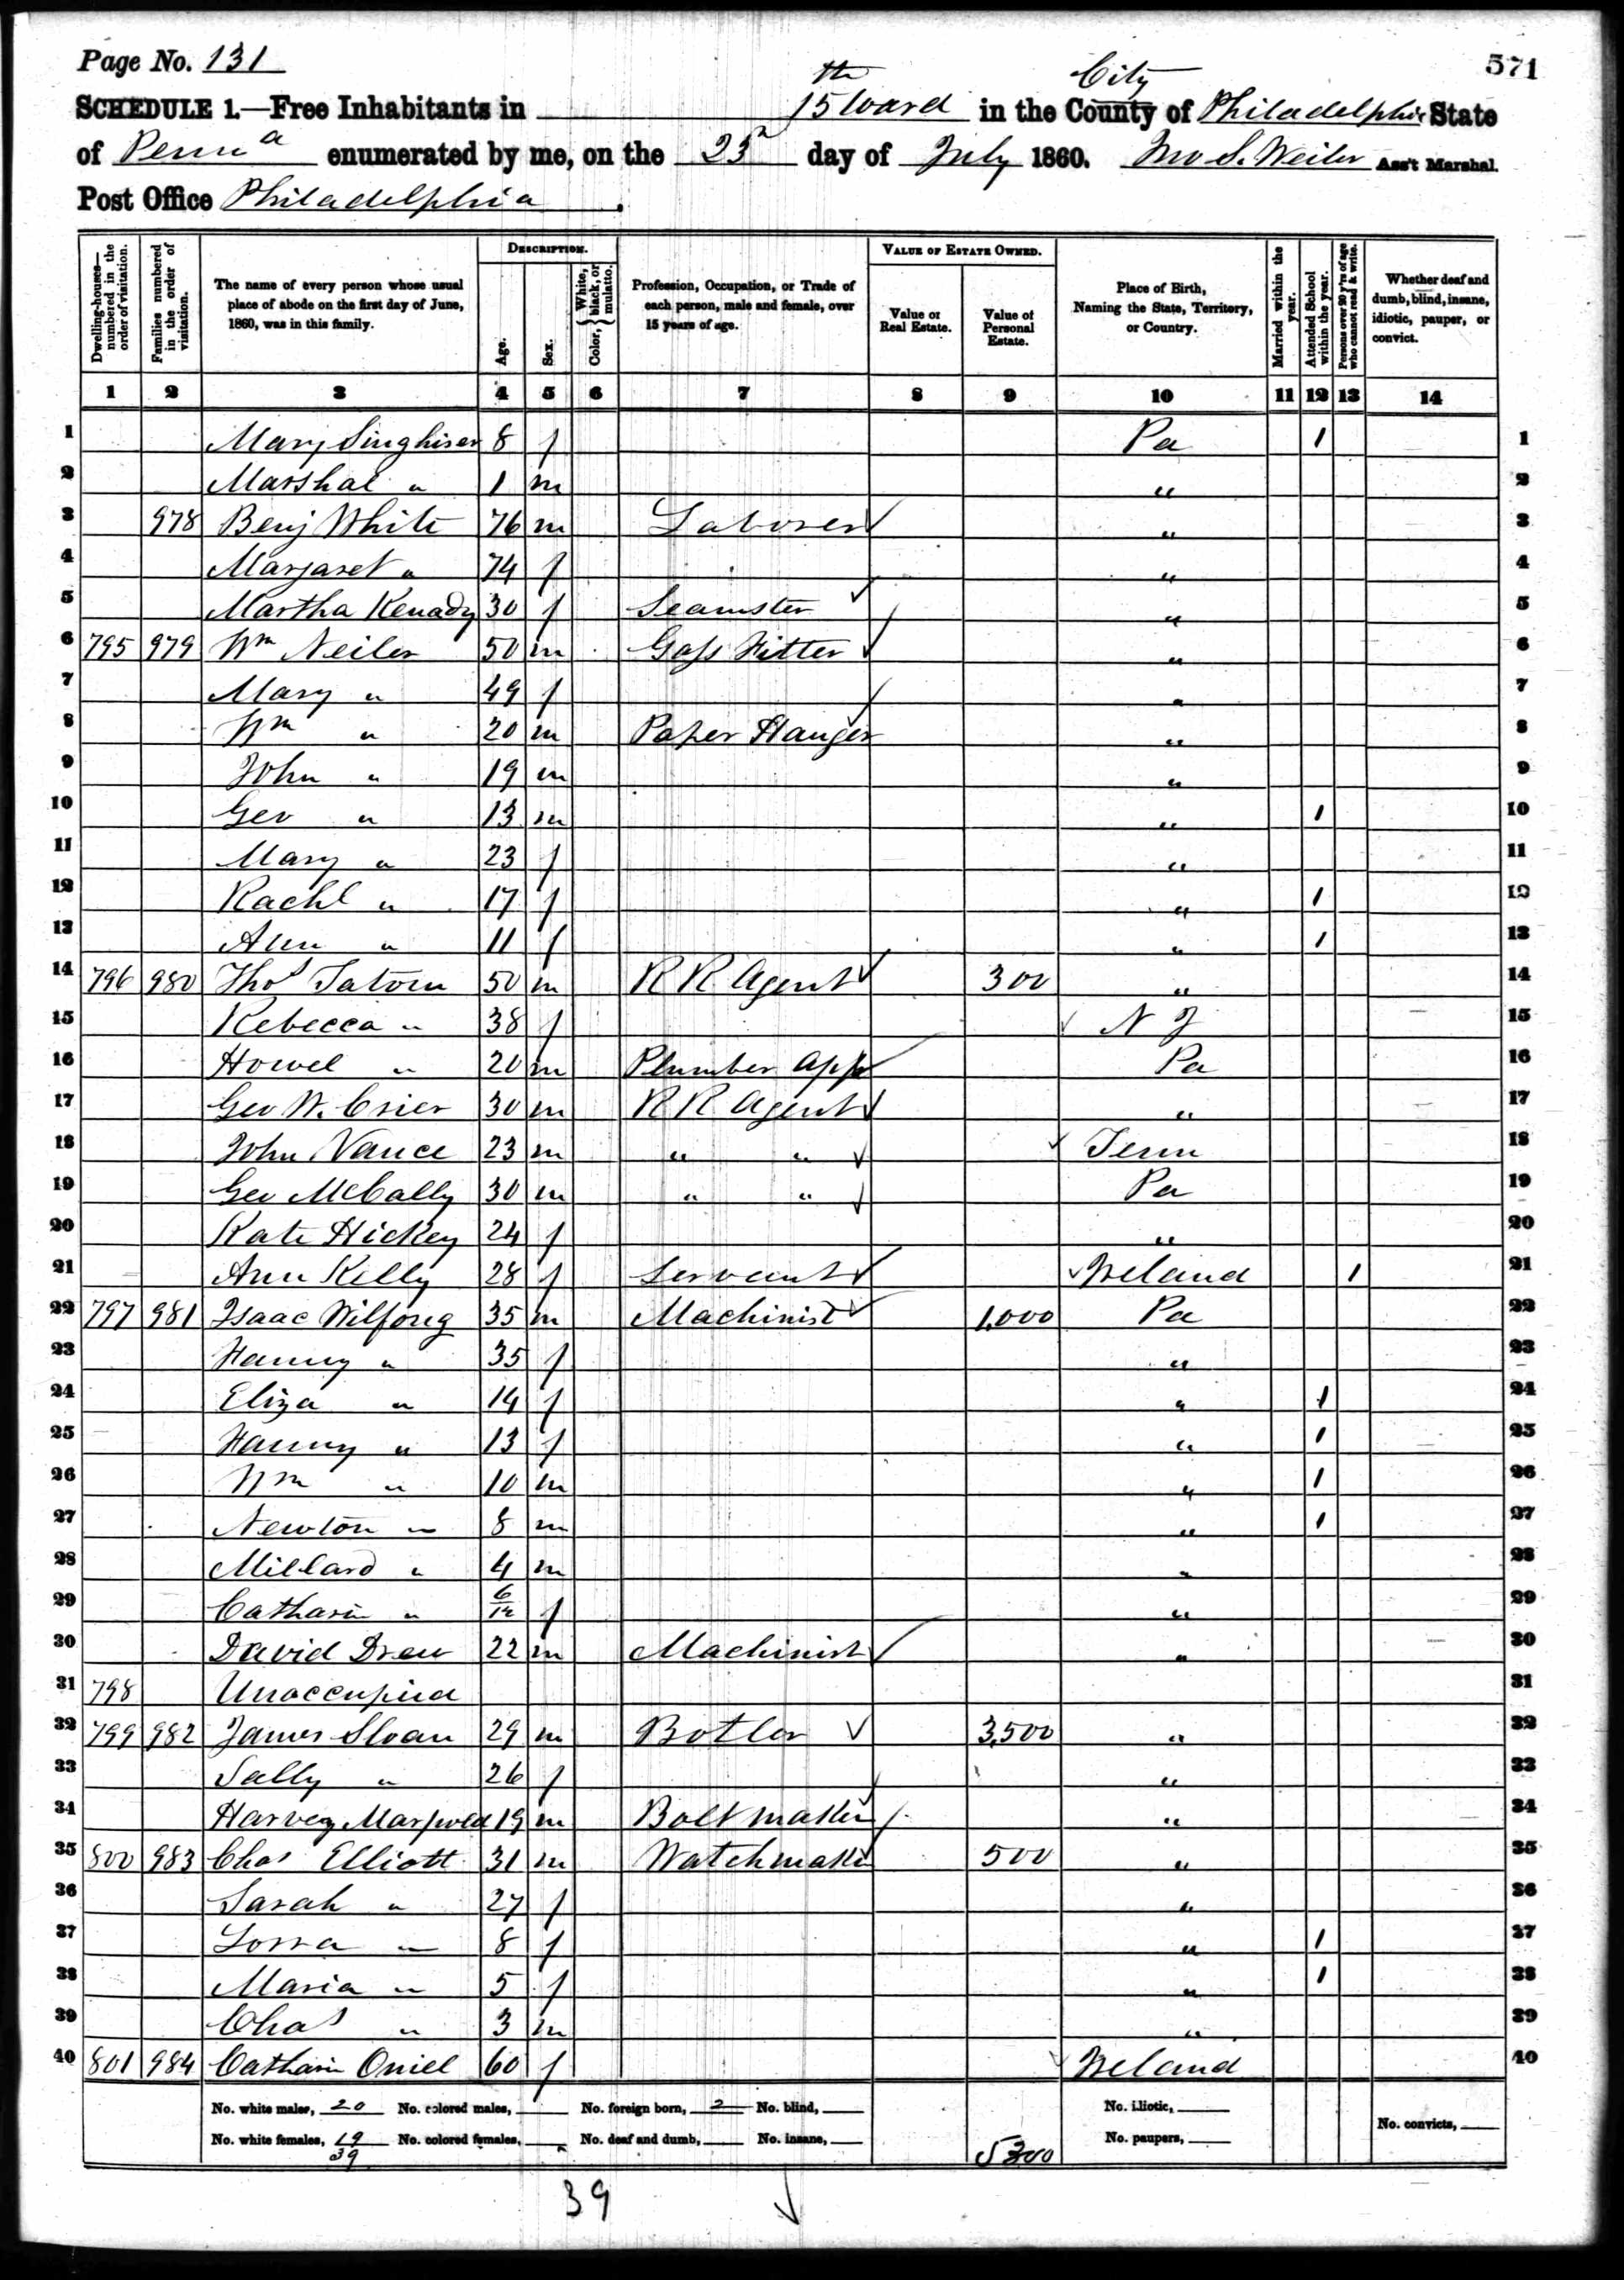 Page No. 131
571
SCHEDULE 1.—Free Inhabitants in 15th Ward in the County City of Philadelphia State
of Penna enumerated by me, on the 23d day of July 1860. Jno S. Weiler Ass't Marshal.
Post Office Philadelphia.
Dwelling-houses—numbered in the order of visitation. Families numbered in the order of visitation. The name of every person whose usual place of abode on the first day of June, 1860, was in this family. DESCRIPTION. Age. Sex. Color, { White, black, or mulatto. Profession, Occupation, or Trade of each person, male and female, over 15 years of age. VALUE OF ESTATE OWNED. Value of Real Estate. Value of Personal Estate. Place of Birth, Naming the State, Territory, or Country. Married within the year. Attended School within the year. Persons over 20 y'rs of age who cannot read & write. Whether deaf and dumb, blind, insane, idiotic, pauper, or convict.
1 2 3 4 5 6 7 8 9 10 11 12 13 14
1 Mary Singhiser 8 f Pa 1 1
2 Marshal " 1 m " 2
3 978 Benj White 76 m Laborer " 3
4 Margaret " 74 f " 4
5 Martha Kenady 30 f Seamster " 5
6 795 979 Wm Neiler 50 m Gass Fitter " 6
7 Mary " 49 f " 7
8 Wm " 20 m Paper Hanger " 8
9 John " 19 m " 9
10 Geo " 13 m " 1 10
11 Mary " 23 f " 11
12 Rachl " 17 f " 1 12
13 Ann " 11 f " 1 13
14 796 980 Thos Tatom 50 m R R Agent 300 " 14
15 Rebecca " 38 f N J 15
16 Howel " 20 m Plumber App Pa 16
17 Geo W. Crier 30 m R R Agent " 17
18 John Vance 23 m " " Tenn 18
19 Geo McCally 30 m " " Pa 19
20 Kate Hickey 24 f " 20
21 Ann Kelly 28 f Servant Ireland 1 21
22 797 981 Isaac Wilfong 35 m Machinist 1,000 Pa 22
23 Hanny " 35 f " 23
24 Eliza " 14 f " 1 24
25 Hanny " 13 f " 1 25
26 Wm " 10 m " 1 26
27 Newton " 8 m " 1 27
28 Millard " 4 m " 28
29 Catharin " 6/12 f " 29
30 David Drew 22 m Machinist " 30
31 798 Unoccupied 31
32 799 982 James Sloan 29 m Botler 3,500 " 32
33 Sally " 26 f " 33
34 Harvey 19 m Bolt maker " 34
35 800 983 Chas Elliott 31 m Watchmaker 500 " 35
36 Sarah " 27 f " 36
37 Lorra " 8 f " 1 37
38 Maria " 5 f " 1 38
39 Chas " 3 m " 39
40 801 984 Catharin Oniel 60 f Ireland 40
No. white males, 20 No. colored males, No. foreign born, 2 No. blind, No. idiotic,
No. white females, 19 No. colored females, No. deaf and dumb, No. insane, 5300 No. paupers, No. convicts,
39
39